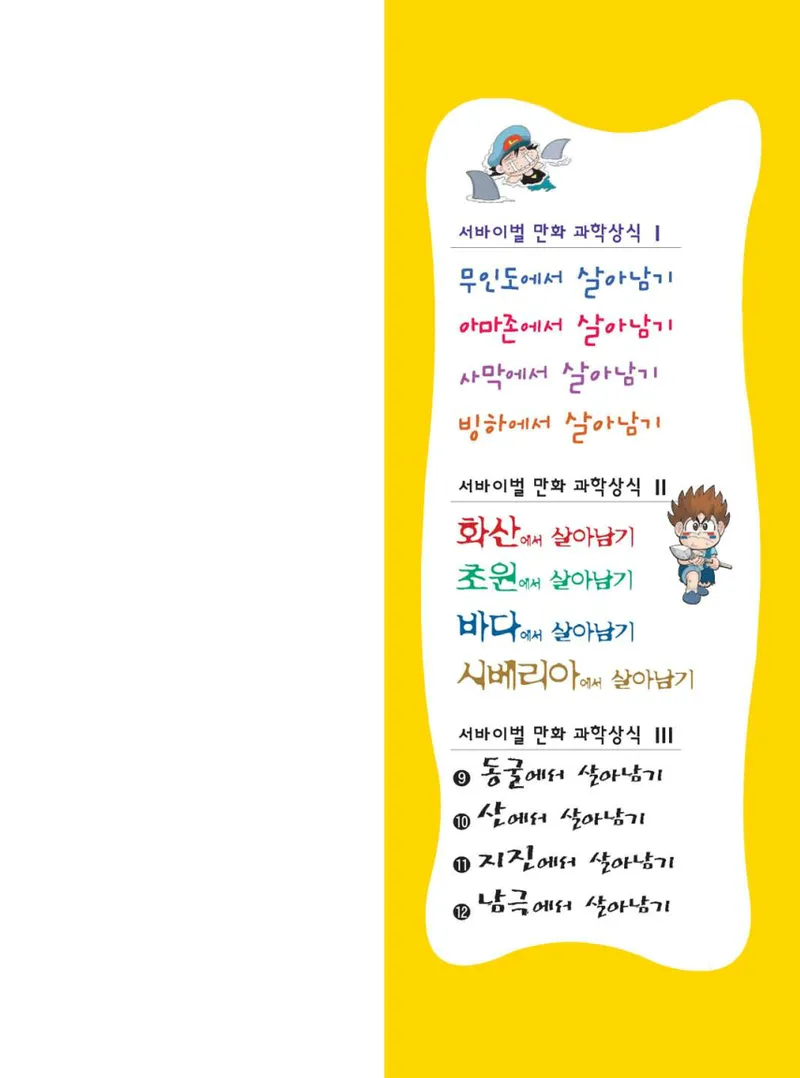 서바이벌 만화 과학상식 Ⅰ
무인도에서 살아남기
아마존에서 살아남기
사막에서 살아남기
빙하에서 살아남기
서바이벌 만화 과학상식 Ⅱ
화산에서 살아남기
초원에서 살아남기
바다에서 살아남기
시베리아에서 살아남기
서바이벌 만화 과학상식 Ⅲ
❾ 동굴에서 살아남기
❿ 산에서 살아남기
⓫ 지진에서 살아남기
⓬ 남극에서 살아남기